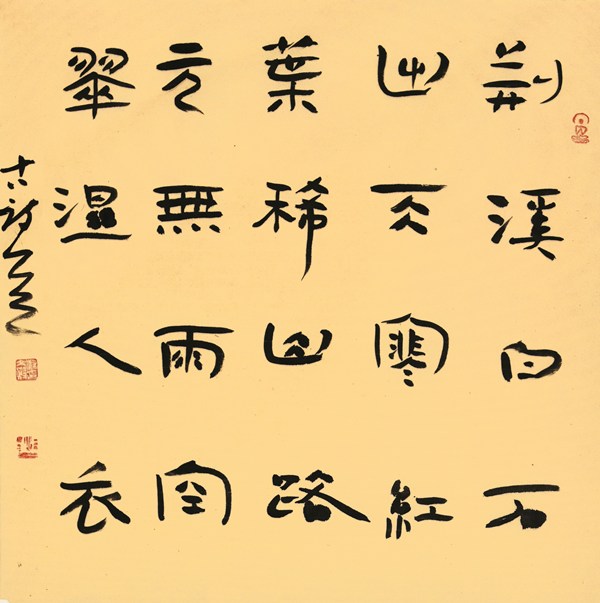 荆溪白石
出天寒紅
葉稀山路
元無雨空
翠湿人衣